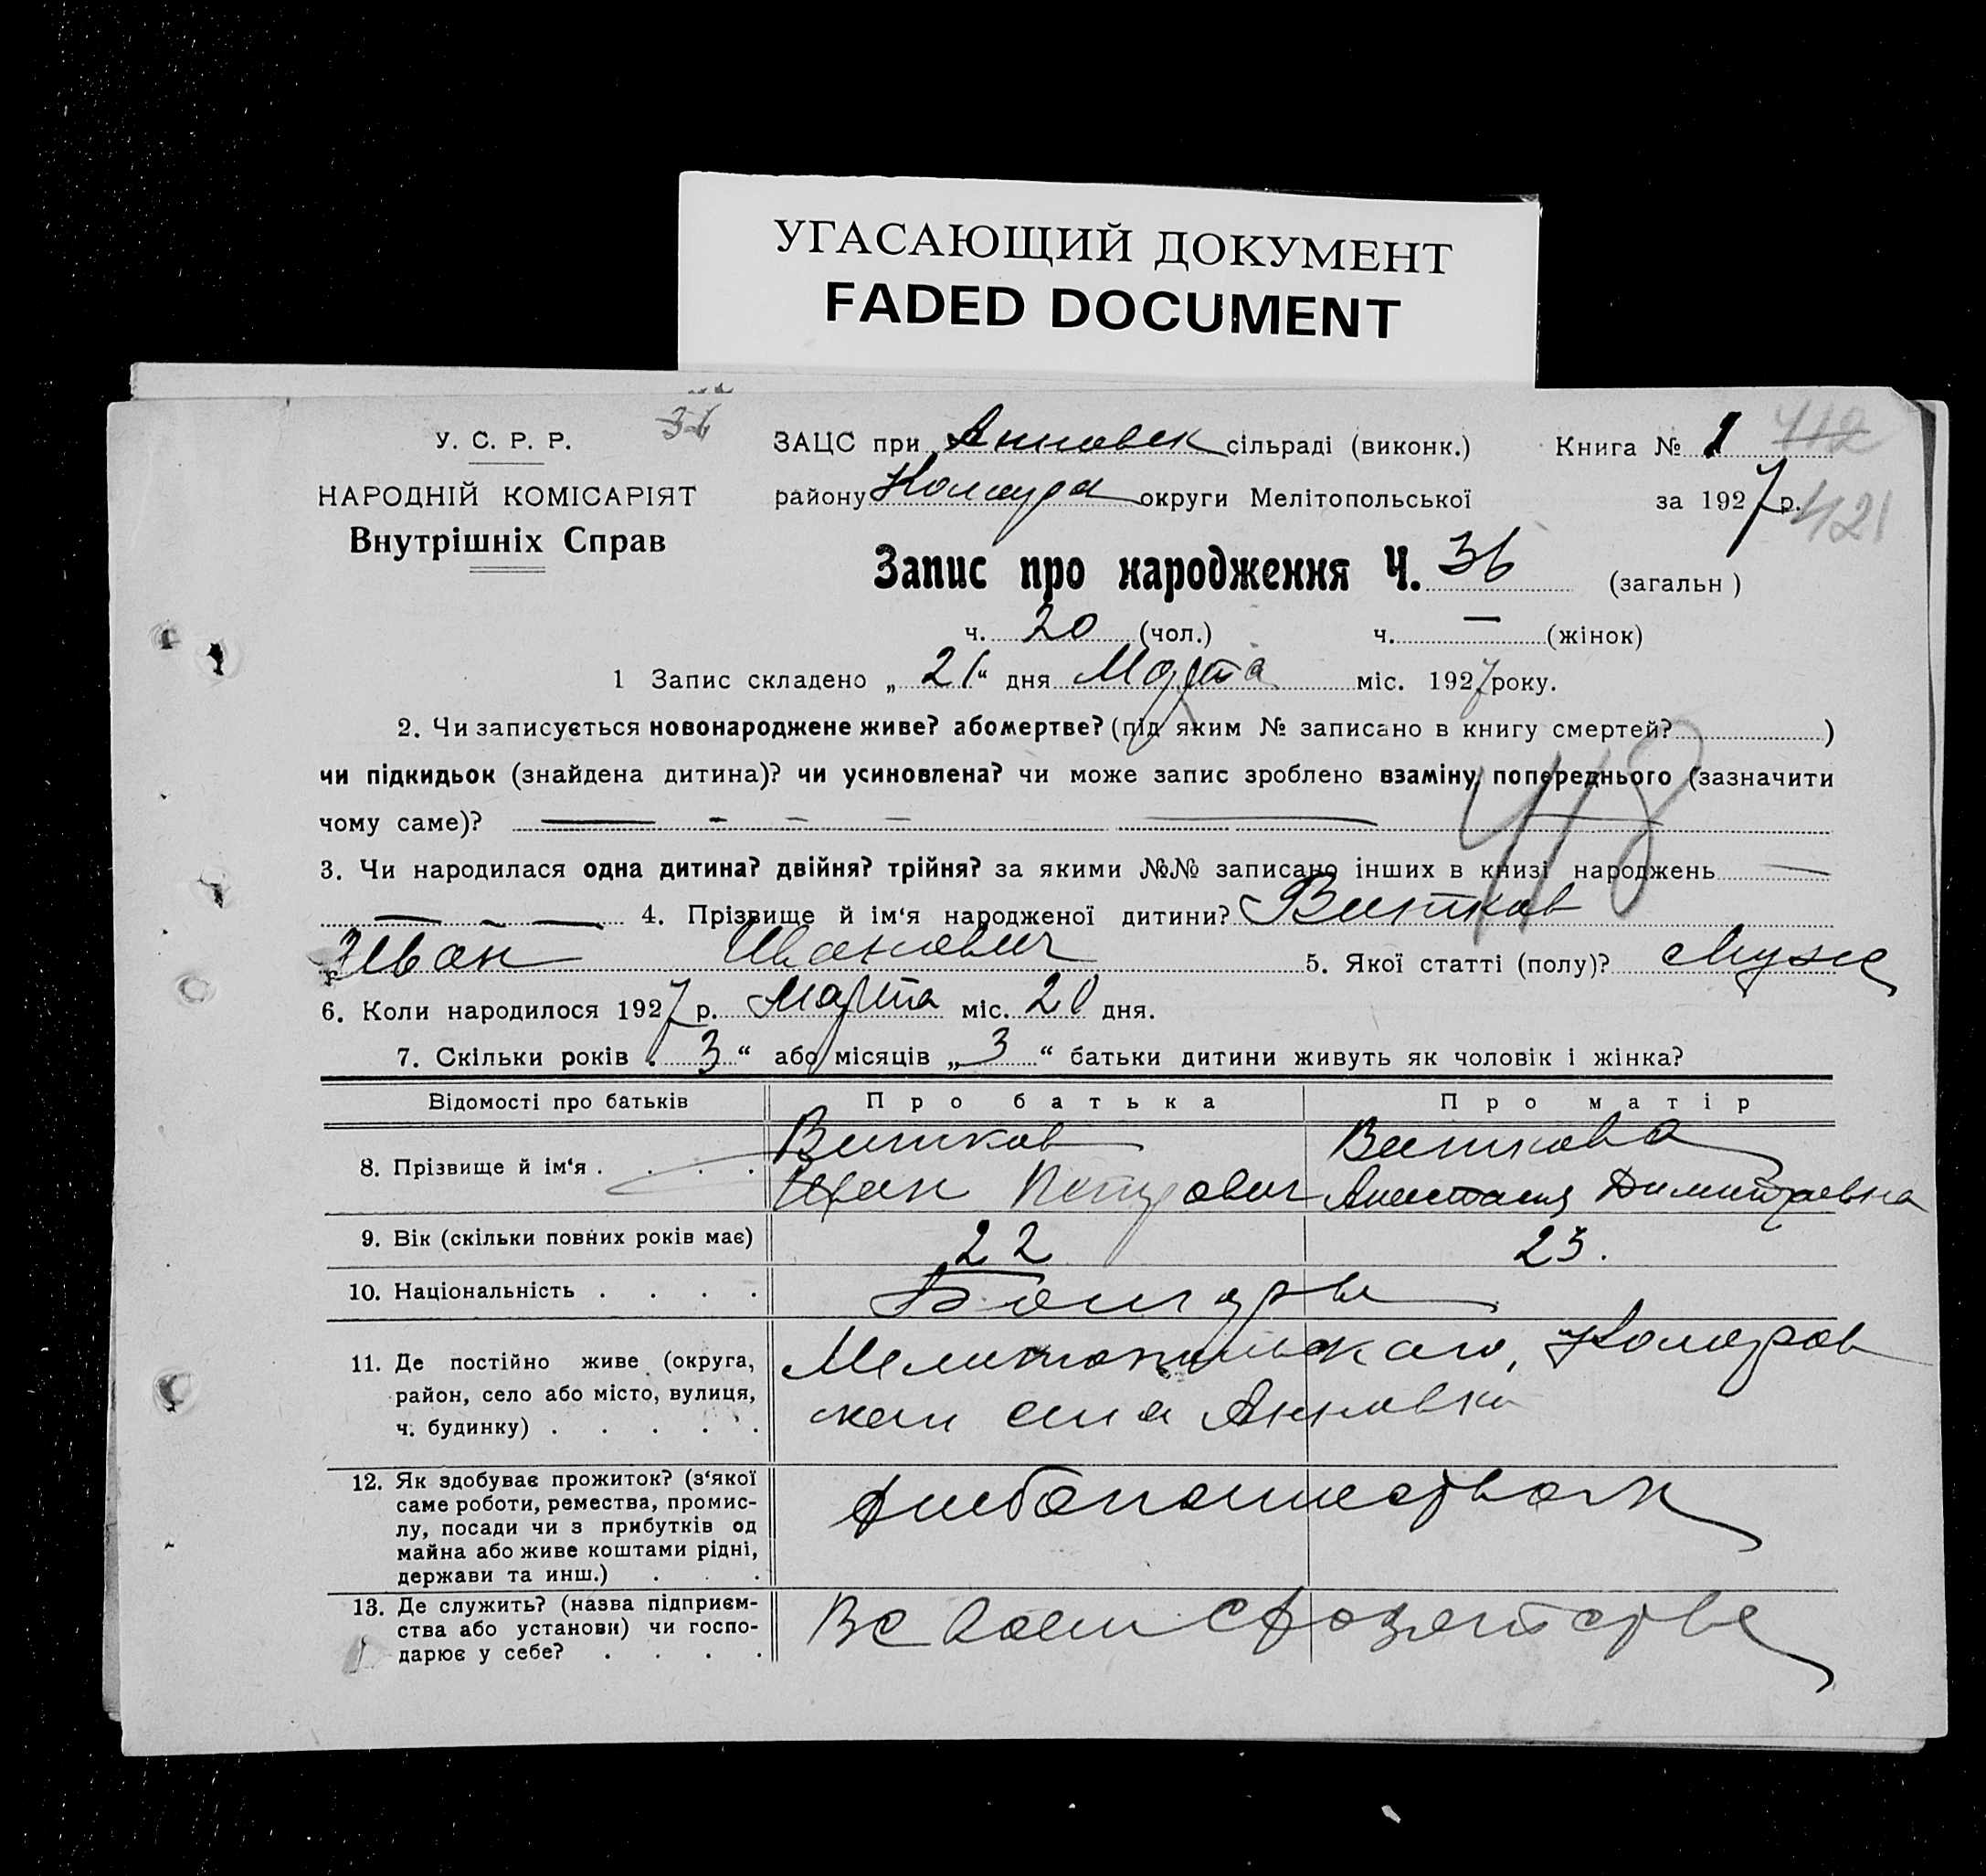 УГАСАЮЩИЙ ДОКУМЕНТ
FADED DOCUMENT
У. С. Р. Р.
НАРОДНІЙ КОМІСАРІЯТ
Внутрішніх Справ
36
ЗАЦС при Анновск сільраді (виконк.)
Книга № 1
412
району округи Мелітопольської
за 1927 р.
421
Запис про народження Ч. 36 (загальн)
ч. 20 (чол.) ч. — (жінок)
1 Запис складено „21“ дня Марта міс. 1927 року.
2. Чи записується новонароджене живе? або мертве? (під яким № записано в книгу смертей? )
чи підкидьок (знайдена дитина)? чи усиновлена? чи може запис зроблено взаміну попереднього (зазначити
чому саме)? — - - - — —
418
3. Чи народилася одна дитина? двійня? трійня? за якими №№ записано інших в книзі народжень —
— - — 4. Прізвище й ім‘я народженої дитини? Витков
Иван Иванович 5. Якої статті (полу)? Муж
6. Коли народилося 1927 р. Марта міс. 20 дня.
7. Скільки років „3“ або місяців „3“ батьки дитини живуть як чоловік і жінка?
Відомості про батьків Про батька Про матір
8. Прізвище й ім‘я . . . .
Витков
Иван Петрович
Виткова
Анастасия Димитриевна
9. Вік (скільки повних років має) 22 23.
10. Національність . . . . Болгары
11. Де постійно живе (округа,
район, село або місто, вулиця,
ч. будинку) . . . . .
Мелитопольскаго,
села Анновки
12. Як здобуває прожиток? (з‘якої
саме роботи, ремества, промис-
лу, посади чи з прибутків од
майна або живе коштами рідні,
держави та инш.) . . .
хлебопашеством
13. Де служить? (назва підприєм-
ства або установи) чи госпо-
дарює у себе? . . . .
В своем хозяйстве